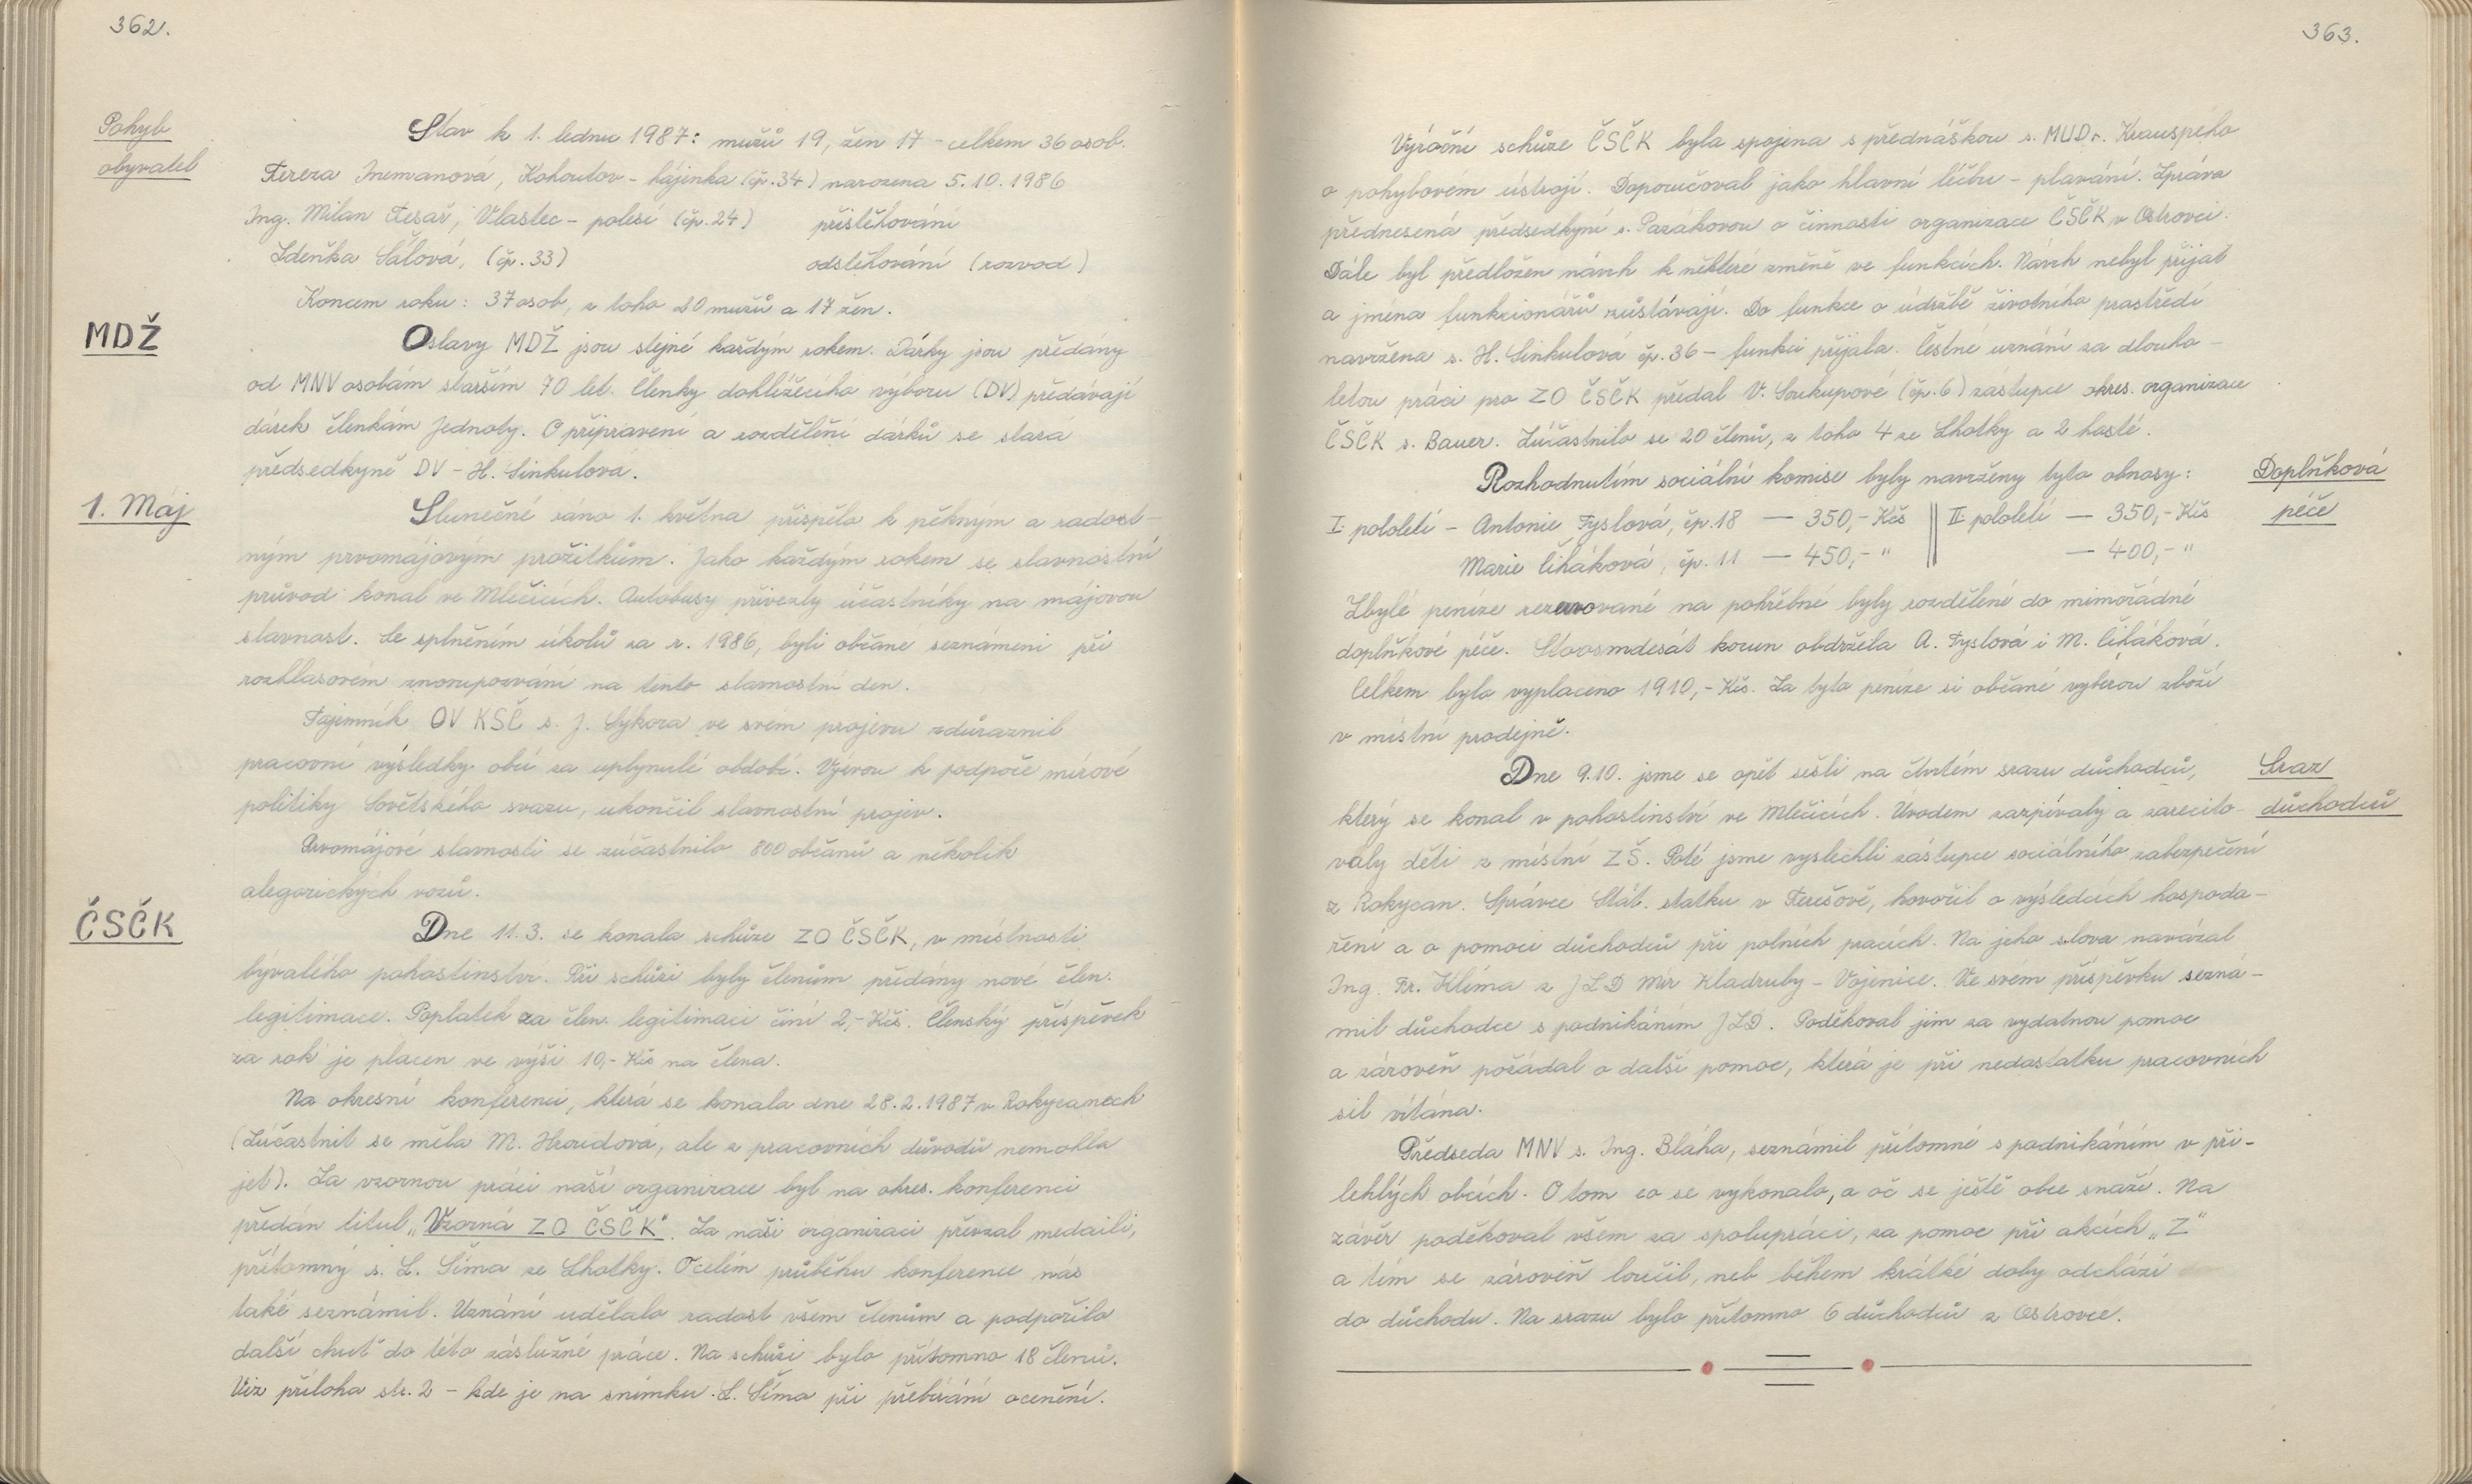 362.
Pohyb
obyvatel
Stav k 1. lednu 1987: mužů 19, žen 17 - celkem 36 osob.
Tereza Inemanová, Kohoutov - hájenka (čp. 34) narozena 5.10.1986
Ing. Milan Tesař, Vlastec - polesí (čp. 24) přistěhování
Zdeňka Šálová, (čp. 33) odstěhování (rozvod)
Koncem roku: 37 osob, z toho 20 mužů a 17 žen.
MDŽ
Oslavy MDŽ jsou stejné každým rokem. Dárky jsou předány
od MNV osobám starším 70 let. Členky dohlížecího výboru (DV) předávají
dárek členkám Jednoty. O připravení a rozdělení dárků se stará
předsedkyně DV - H. Sinkulová.
1. Máj
Slunečné ráno 1. května přispělo k pěkným a radost-
ným prvomájovým prožitkům. Jako každým rokem se slavnostní
průvod konal ve Mlečicích. Autobusy přivezly účastníky na májovou
slavnost. Se splněním úkolů za r. 1986, byli občane seznámeni při
rozhlasovém znovupozvání na tento slavnostní den.
Tajemník OV KSČ s. J. Sýkora ve svém projevu zdůraznil
pracovní výsledky obcí za uplynulé období. Výzvou k podpoře mírové
politiky Sovětského svazu, ukončil slavnostní projev.
Prvomájové slavnosti se zúčastnilo 800 občanů a několik
alegorických vozů.
ČSČK
Dne 11.3. se konala schůze ZO ČSČK, v místnosti
bývalého pohostinství. Při schůzi byly členům předány nové člen.
legitimace. Poplatek za člen. legitimaci činí 2,- Kčs. Členský příspěvek
za rok je placen ve výši 10,- Kčs na člena.
Na okresní konferenci, která se konala dne 28.2.1987 v Rokycanech
(Zúčastnit se měla M. Hroudová, ale z pracovních důvodů nemohla
jet). Za vzornou práci naší organizace byl na okres. konferenci
předán titul „Vzorná ZO ČSČK". Za naši organizaci převzal medaili,
přítomný s. L. Šíma ze Lhotky. O celém průběhu konference nás
také seznámil. Uznání udělalo radost všem členům a podpořilo
další chuť do této záslužné práce. Na schůzi bylo přítomno 18 členů.
Viz příloha str. 2 - kde je na snímku L. Šíma při přebírání ocenění.
363.
Výroční schůze ČSČK byla spojena s přednáškou s. MUDr. Krauspeho
o pohybovém ústrojí. Doporučoval jako hlavní léčbu - plavání. Zpráva
přednesená předsedkyní s. Pazákovou o činnosti organizace ČSČK v Ostrovci.
Dále byl předložen návrh k některé změně ve funkcích. Návrh nebyl přijat
a jména funkcionářů zůstávají. Do funkce o údržbě životního prostředí
navržena s. H. Sinkulová čp. 36 - funkci přijala. Čestné uznání za dlouho-
letou práci pro ZO ČSČK předal V. Soukupové (čp. 6) zástupce okres. organizace
ČSČK s. Bauer. Zúčastnilo se 20 členů, z toho 4 ze Lhotky a 2 hosté.
Doplňková
péče
Rozhodnutím sociální komise byly navrženy tyto obnosy:
I. pololetí - Antonie Fyslová, čp. 18 — 350,- Kčs || II. pololetí — 350,- Kčs
Marie Čiháková, čp. 11 — 450,- " || — 400,- "
Zbylé peníze rezervované na pohřebné byly rozdělené do mimořádné
doplňkové péče. Stoosmdesát korun obdržela A. Fyslová i M. Čiháková.
Celkem bylo vyplaceno 1910,- Kčs. Za tyto peníze si občané vyberou zboží
v místní prodejně.
Sraz
důchodců
Dne 9.10. jsme se opět sešli na čtvrtém srazu důchodců,
který se konal v pohostinství ve Mlečicích. Úvodem zazpívaly a zarecito-
valy děti z místní ZŠ. Poté jsme vyslechli zástupce sociálního zabezpečení
z Rokycan. Správce Stát. statku v Terešově, hovořil o výsledcích hospoda-
ření a o pomoci důchodců při polních pracích. Na jeho slova navázal
Ing. Fr. Klíma z JZD Mír Kladruby - Vojenice. Ve svém příspěvku sezná-
mil důchodce s podnikáním JZD. Poděkoval jim za vydatnou pomoc
a zároveň požádal o další pomoc, která je při nedostatku pracovních
sil vítána.
Předseda MNV s. Ing. Bláha, seznámil přítomné s podnikáním v při-
lehlých obcích. O tom co se vykonalo, a oč se ještě obce snaží. Na
závěr poděkoval všem za spolupráci, za pomoc při akcích „Z"
a tím se zároveň loučil, neb během krátké doby odchází
do důchodu. Na srazu bylo přítomno 6 důchodců z Ostrovce.